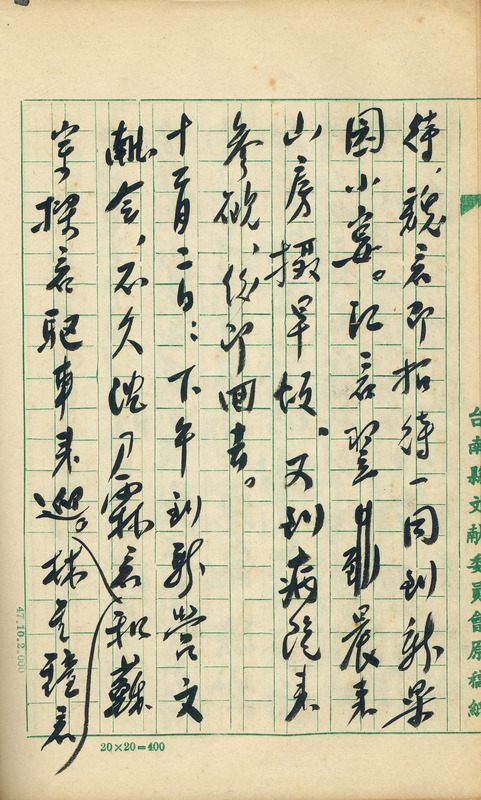 台南縣文獻委員會原稿紙
待，魏君即招待一同到新果
園小宴。江君翌晨來
山房攝早頓，又到病院來
參砍，後即回去。
十二月二日：下午到新營文
獻會，不久沈乃霖君和蘇
探君駛車來迎。林之瑄君
20×20=400
47.10.2.000